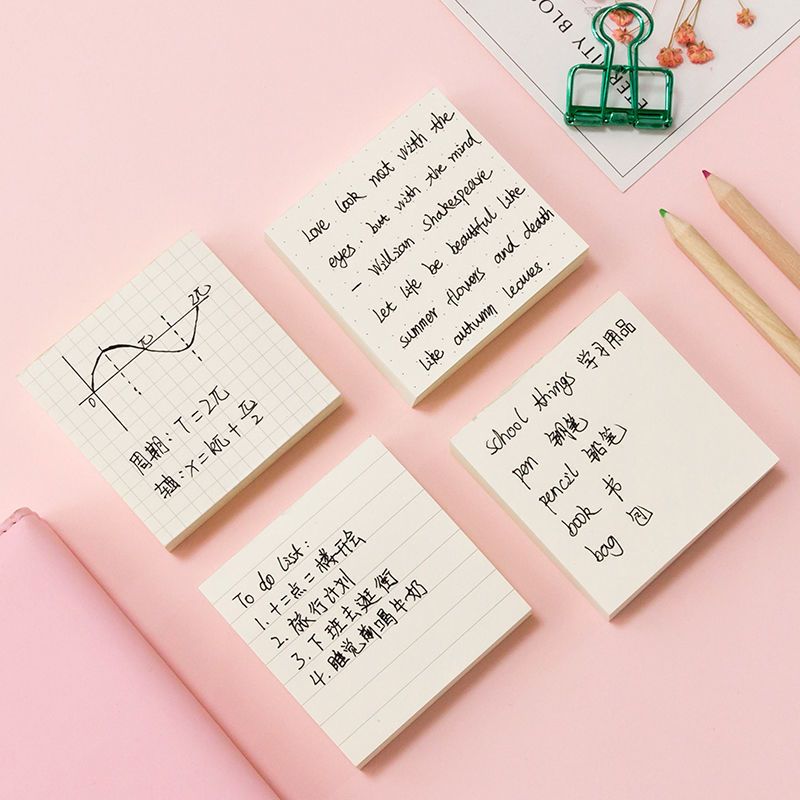 ETERNITY BLO
Love look not with the
eyes, but with the mind
— Willian Shakespeare
Let life be beautiful like
summer flowers and death
like autumn leaves.
0
π
2π
周期: T=2π
轴: x=kπ+π/2
school things 学习用品
pen 钢笔
pencil 铅笔
book 书
bag 包
To do list:
1. 十二点二楼开会
2. 旅行计划
3. 下班去逛街
4. 睡觉前喝牛奶